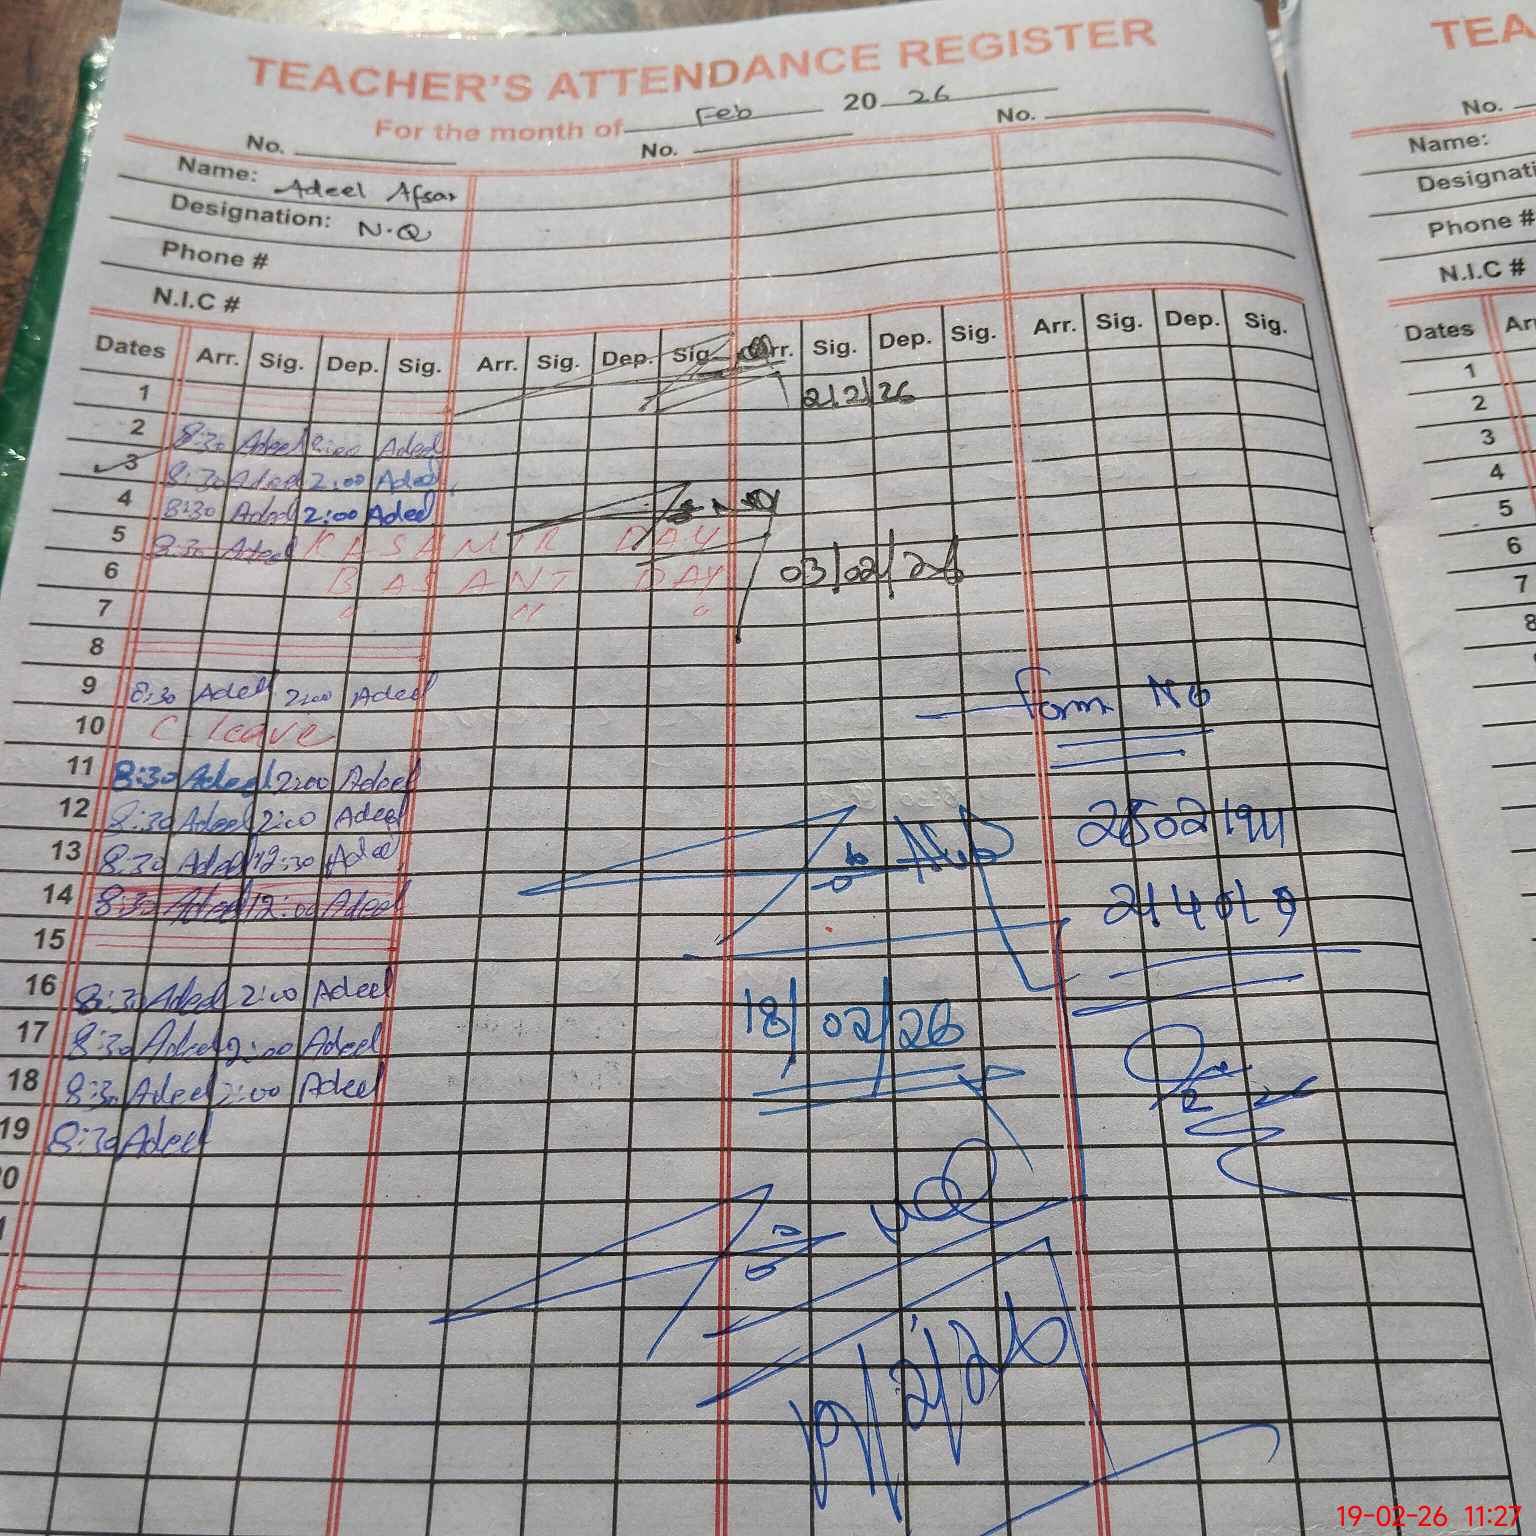 TEACHER'S ATTENDANCE REGISTER
For the month of Feb 20 26
No. No. No.
Name: Adeel Afsar
Designation: N.Q
Phone #
N.I.C #
Dates Arr. Sig. Dep. Sig. Arr. Sig. Dep. Sig. Arr. Sig. Dep. Sig. Arr. Sig. Dep. Sig.
1 2/2/26
2 8:30 Adeel 2:00 Adeel
3 8:30 Adeel 2:00 Adeel
4 8:30 Adeel 2:00 Adeel
5 8:30 Adeel KASHMIR DAY
6 BASANT DAY 03/02/26
7 " " "
8
9 8:30 Adeel 2:00 Adeel Form No
10 C. leave
11 8:30 Adeel 2:00 Adeel
12 8:30 Adeel 2:00 Adeel
13 8:30 Adeel 12:30 Adeel
14 8:30 Adeel 12:00 Adeel
15
16 8:30 Adeel 2:00 Adeel 18/02/26
17 8:30 Adeel 2:00 Adeel
18 8:30 Adeel 2:00 Adeel
19 8:30 Adeel
19/2/26
TEA
No.
Name:
Designati
Phone #
N.I.C #
Dates Arr
1
2
3
4
5
6
7
8
19-02-26 11:27